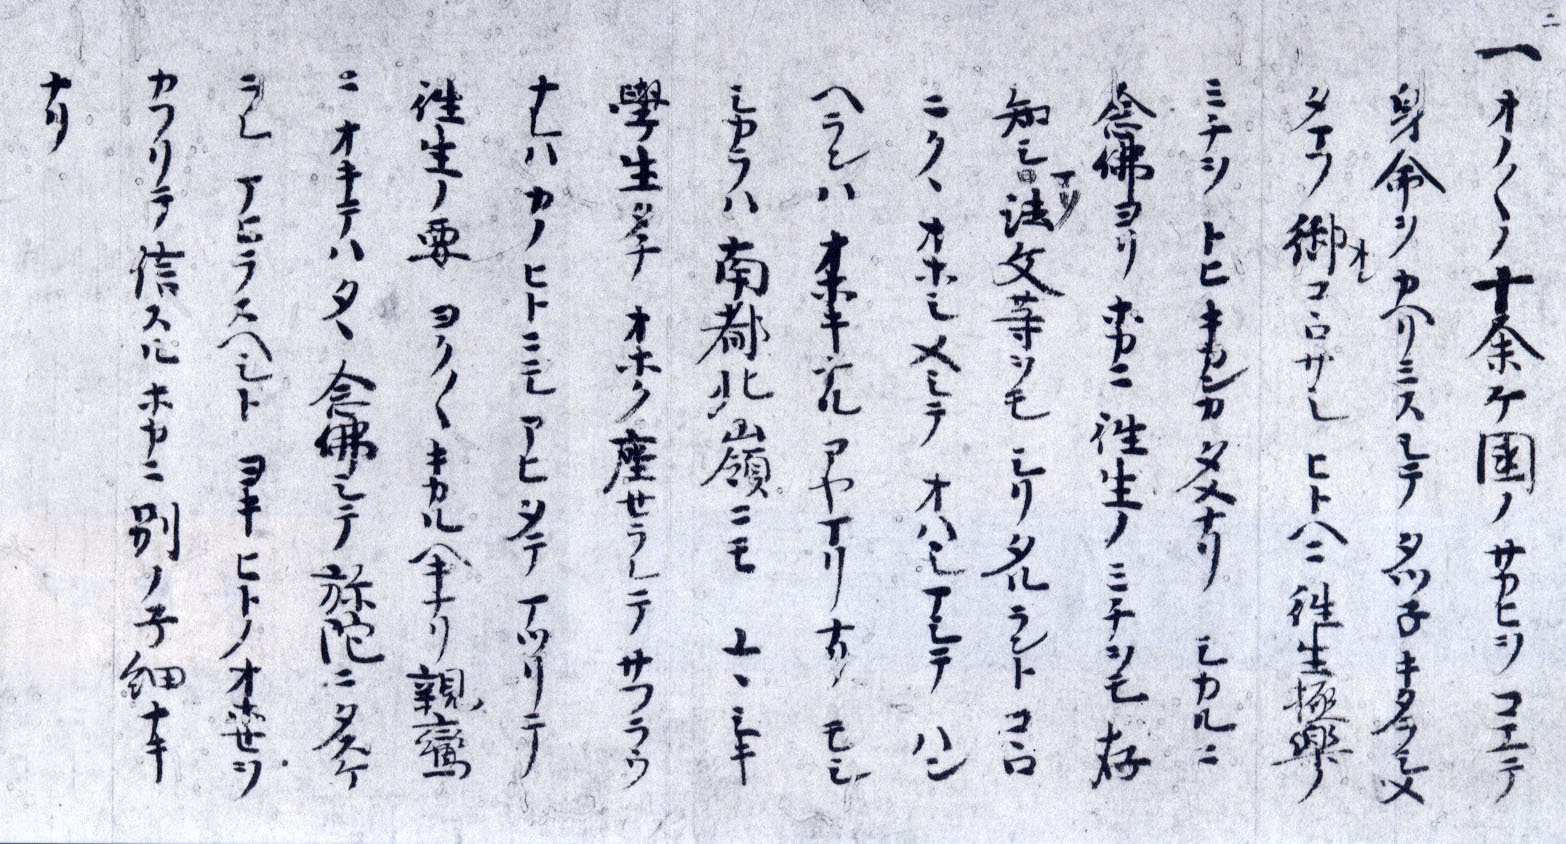 二
一オノ〱ノ十余ケ国ノサカヒヲコエテ
身命ヲカヘリミスシテタツ子キタラシメ
タマフ御コヽロサシヒトヘニ往生極樂ノ
ミチヲトヒキカンカタメナリシカルニ
念佛ヨリホカニ往生ノミチヲモ存
知シマタ法文等ヲモシリタルラントコヽロ
ニクヽオホシメシテオハシマシテハン
ヘランハオホキナルアヤマリナリモシ
シカラハ南都北嶺ニモユヽシキ
學生タチオホク座セラレテサフラウ
ナレハカノヒトニモアヒタテマツリテ
往生ノ要ヨク〱キカルヘキナリ親鸞
ニオキテハタヽ念佛シテ弥陀ニタスケ
ラレマヒラスヘシトヨキヒトノオホセヲ
カフリテ信スルホカニ別ノ子細ナキ
ナリ